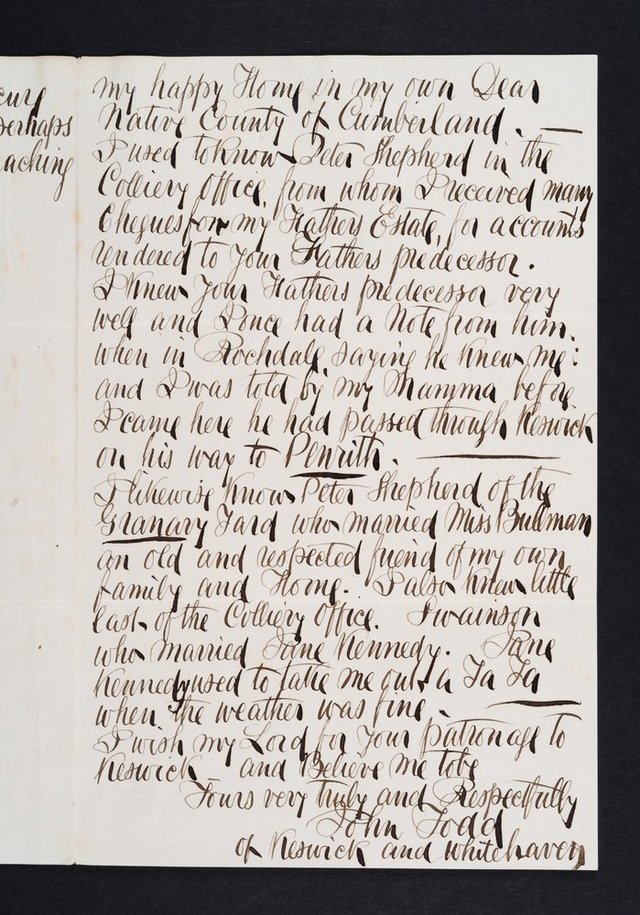 my happy Home in my own Dear
Native County of Cumberland. —
I used to know Peter Shepherd in the
Colliery Office, from whom I received many
Cheques for my Fathers Estate, for accounts
rendered to your Fathers predecessor.
I knew your Fathers predecessor very
well and I once had a Note from him.
when in Rochdale saying he knew me:
and I was told by my Mamma before
I came here he had passed through Keswick
on his way to Penrith. —
I likewise know Peter Shepherd of the
Granary Yard who married Miss Bullman
an old and respected friend of my own
family and Home. I also knew little
east of the Colliery Office. Swainson
who married Jane Kennedy. Jane
Kennedy used to take me out a Ta Ta
when the weather was fine. —
I wish my Lord for your patronage to
Keswick – and Believe me to be
Yours very truly and Respectfully
John Todd
of Keswick and Whitehaven
perhaps